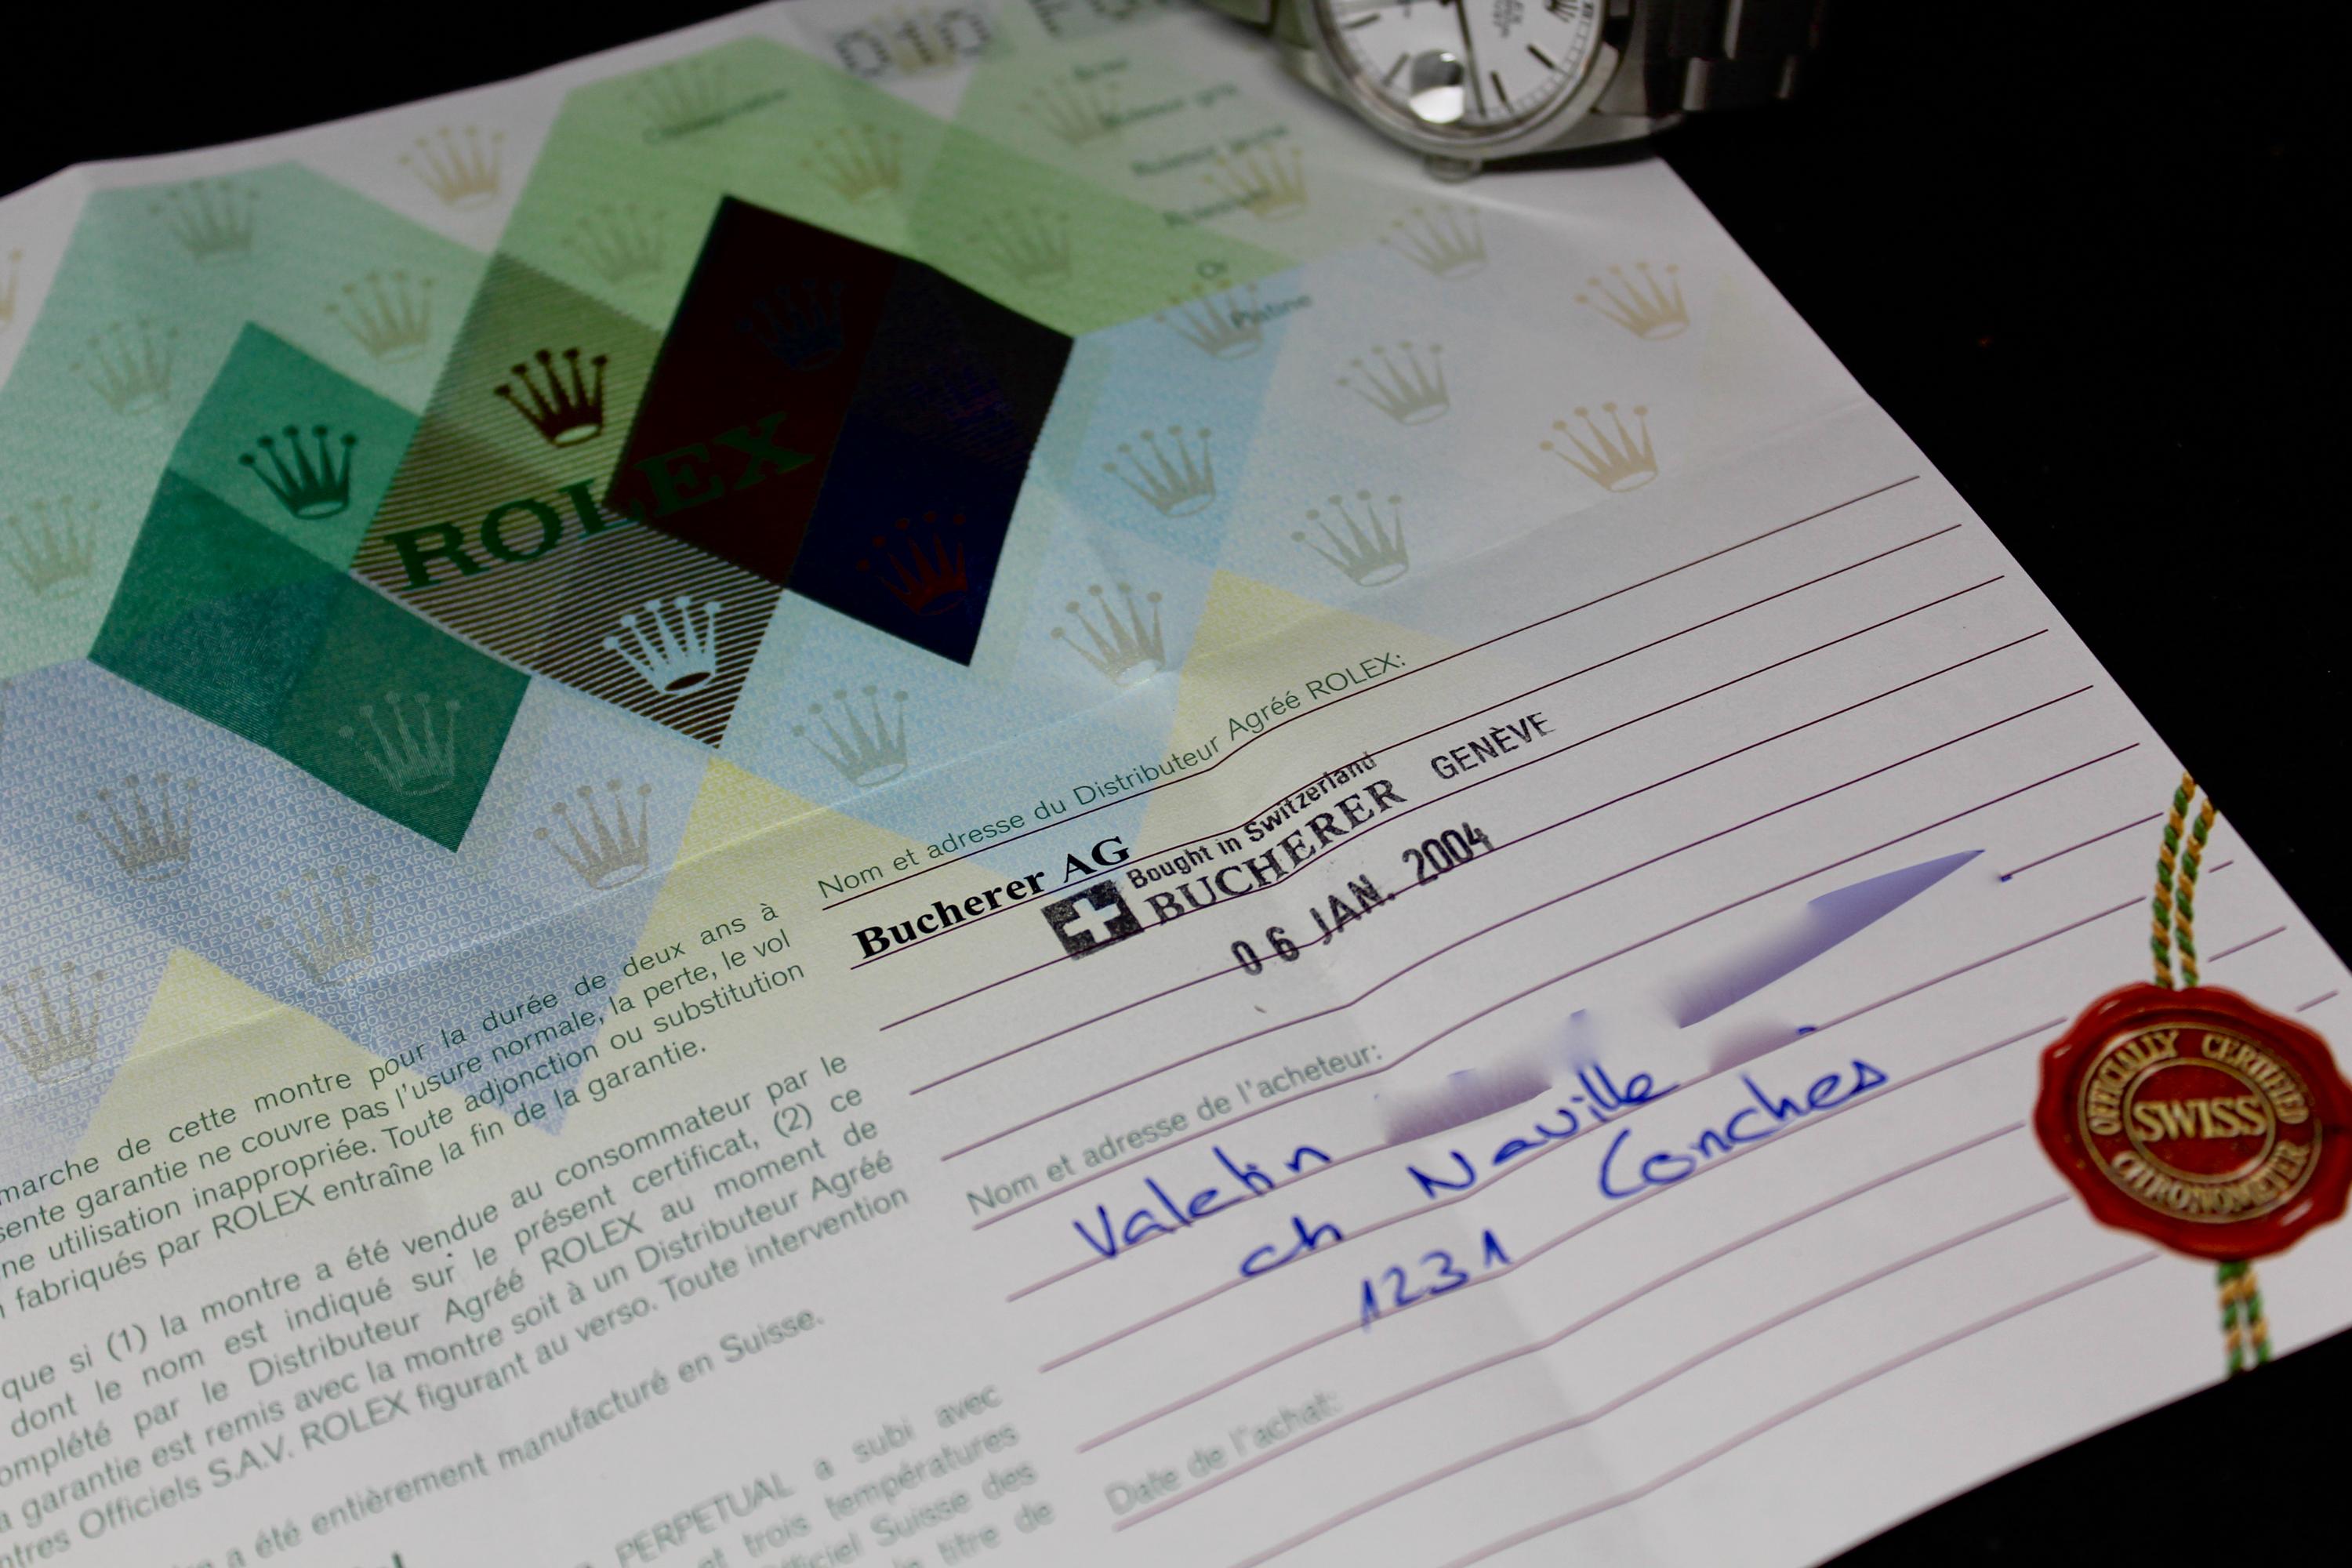 ROLEX
Nom et adresse du Distributeur Agréé ROLEX:
Bucherer AG
Bought in Switzerland
BUCHERER GENÈVE
06 JAN. 2004
Nom et adresse de l'acheteur:
Valetin
ch Naville
1231 Conches
Date de l'achat:
marche de cette montre pour la durée de deux ans à
garantie ne couvre pas l'usure normale, la perte, le vol
utilisation inappropriée. Toute adjonction ou substitution
fabriqués par ROLEX entraîne la fin de la garantie.
que si (1) la montre a été vendue au consommateur par le
dont le nom est indiqué sur le présent certificat, (2) ce
par le Distributeur Agréé ROLEX au moment de
garantie est remis avec la montre soit à un Distributeur Agréé
Officiels S.A.V. ROLEX figurant au verso. Toute intervention
a été entièrement manufacturé en Suisse.
PERPETUAL a subi avec
et trois températures
Officiel Suisse des
le titre de
OFFICIALLY CERTIFIED
SWISS
CHRONOMETER
Or
Platine